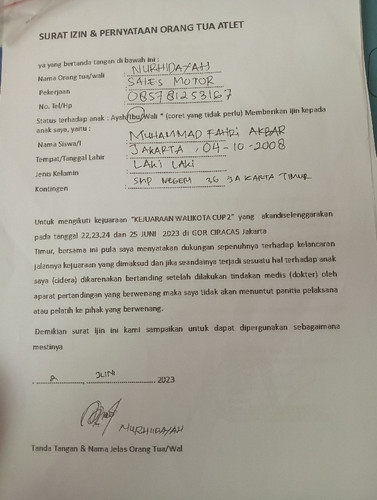 SURAT IZIN & PERNYATAAN ORANG TUA ATLET
ya yang bertanda tangan di bawah ini :
Nama Orang tua/wali : NURHIDAYAH
Pekerjaan : SALES MOTOR
No. Tel/Hp : 085781253167
Status terhadap anak : Ayah/Ibu/Wali * (coret yang tidak perlu) Memberikan ijin kepada
anak saya, yaitu :
Nama Siswa/i : MUHAMMAD FAHRI AKBAR
Tempat/Tanggal Lahir : JAKARTA , 04-10-2008
Jenis Kelamin : LAKI LAKI
Kontingen : SMP NEGERI 26 JAKARTA TIMUR
Untuk mengikuti kejuaraan "KEJUARAAN WALIKOTA CUP 2" yang akandiselenggarakan
pada tanggal 22,23,24 dan 25 JUNI 2023 di GOR CIRACAS Jakarta
Timur, bersama ini pula saya menyatakan dukungan sepenuhnya terhadap kelancaran
jalannya kejuaraan yang dimaksud dan jika seandainya terjadi sesuatu hal terhadap anak
saya (cidera) dikarenakan bertanding setelah dilakukan tindakan medis (dokter) oleh
aparat pertandingan yang berwenang maka saya tidak akan menuntut panitia pelaksana
atau pelatih ke pihak yang berwenang.
Demikian surat Ijin ini kami sampaikan untuk dapat dipergunakan sebagaimana
mestinya
JUNI 2023
NURHIDAYAH
Tanda Tangan & Nama Jelas Orang Tua/Wal